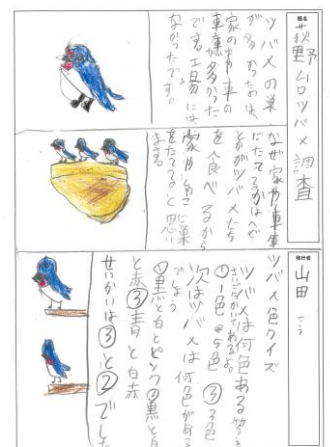 題名
荻野ムロツバメ調査
ツバメの巣
が多かったのは、
家の中や車の
車庫が多かった
です。工場には
なかったです。
なぜ家や車庫
にたてるかはへび
とかがツバメたち
を食べるから
家や
をたてると思い
ます。
発行者
山田
ツバメ色クイズ
ツバメは何色ある
さいごにかいてあるよ。
①1色②5色③3色
次はツバメは何色がある
でしょう
①黒と白とピンク②黒と白
と赤③青と白赤
せいかいは③と②でした